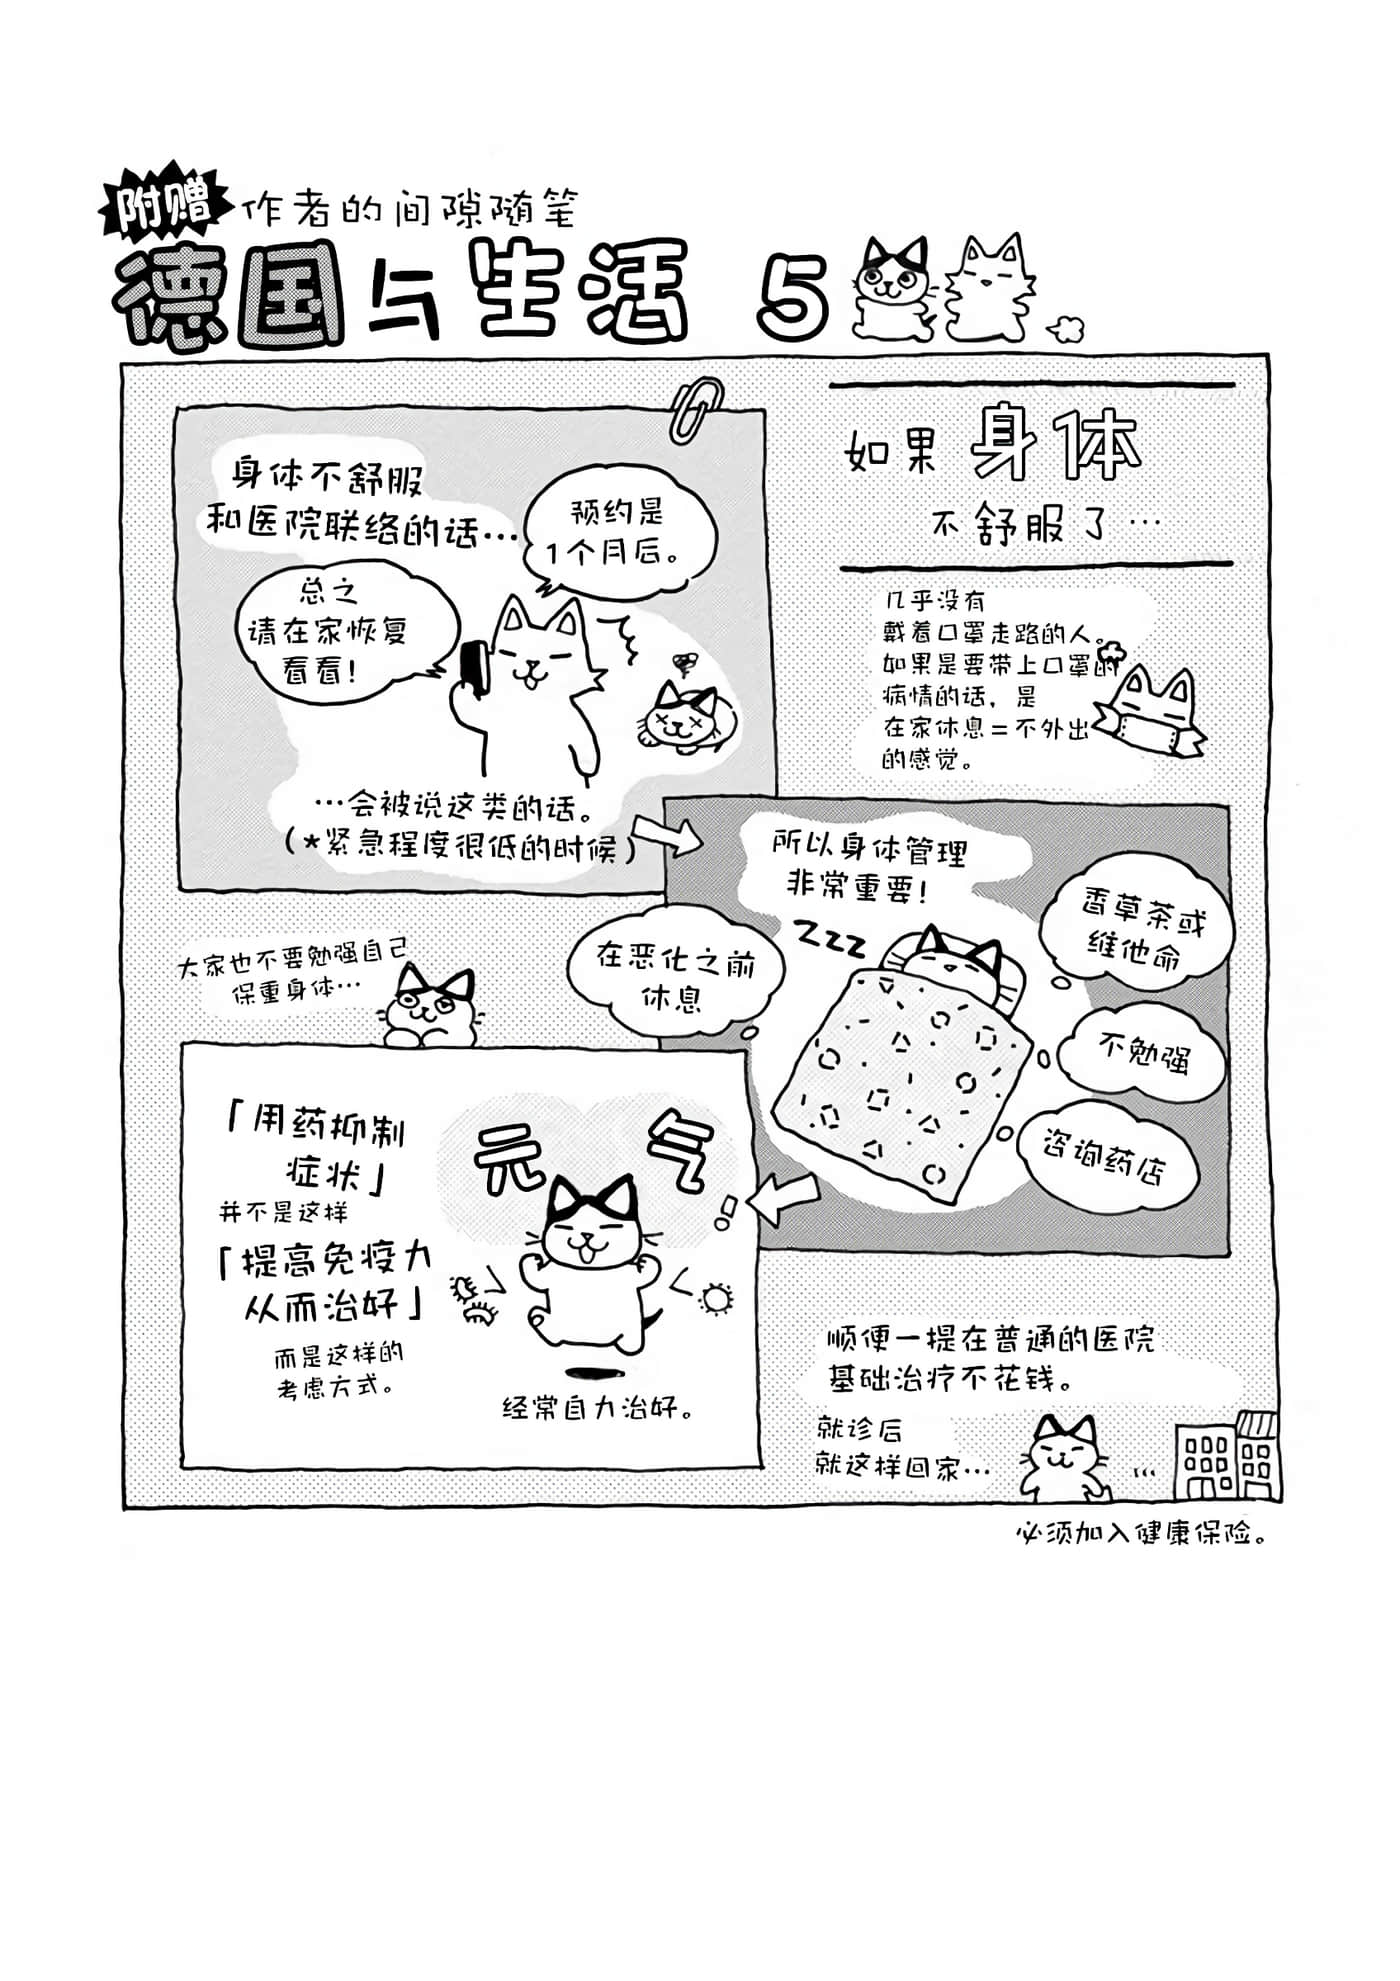 附赠
作者的间隙随笔
德国与生活 5
如果 身体
不舒服了…
身体不舒服
和医院联络的话…
预约是
1个月后。
总之
请在家恢复
看看!
…会被说这类的话。
(*紧急程度很低的时候)
几乎没有
戴着口罩走路的人。
如果是要带上口罩的
病情的话，是
在家休息=不外出
的感觉。
所以身体管理
非常重要!
zzz
香草茶或
维他命
在恶化之前
休息
不勉强
咨询药店
大家也不要勉强自己
保重身体…
「用药抑制
症状」
并不是这样
「提高免疫力
从而治好」
而是这样的
考虑方式。
元气
!
经常自力治好。
顺便一提在普通的医院
基础治疗不花钱。
就诊后
就这样回家…
…
必须加入健康保险。